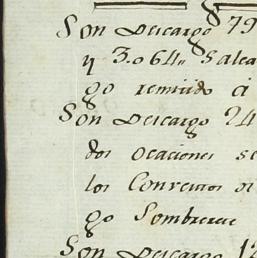 Son Descargo 79
y 3.064„ Salca
go remitido a
Son Descargo 24
dos ocaciones se
los Conventos
go Sombrerete
Son Descargo 12